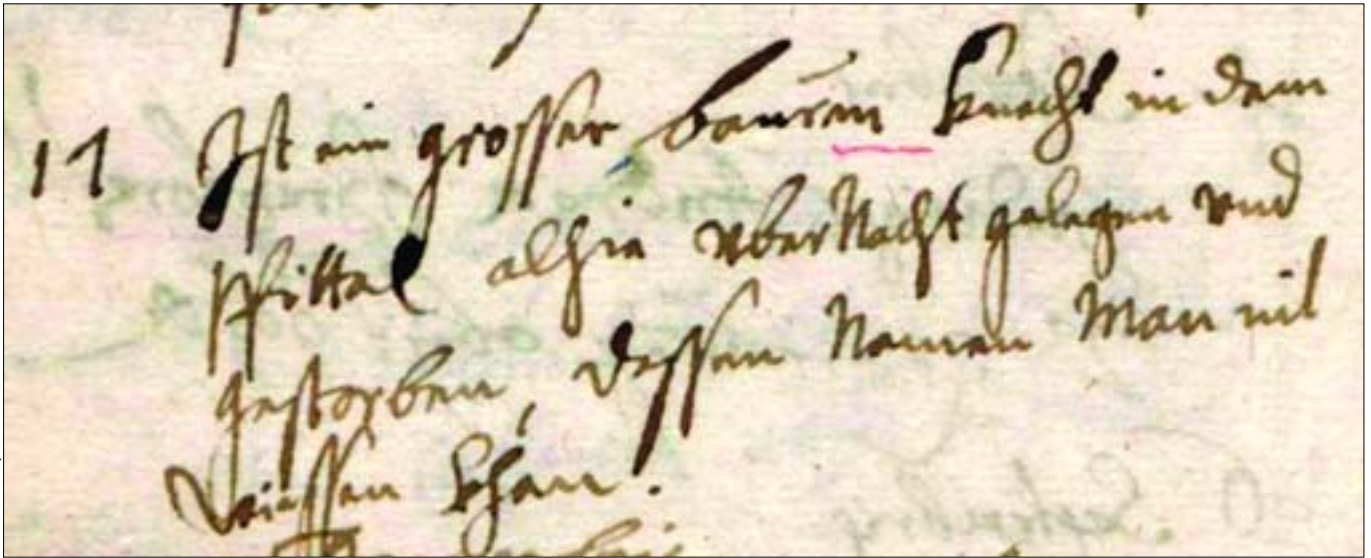 17 Ist ein grosser bauren knecht in dem
Spittal alhie vber Nacht gelegen vnd
gestorben, dessen Namen Man nit
wiessen khan.